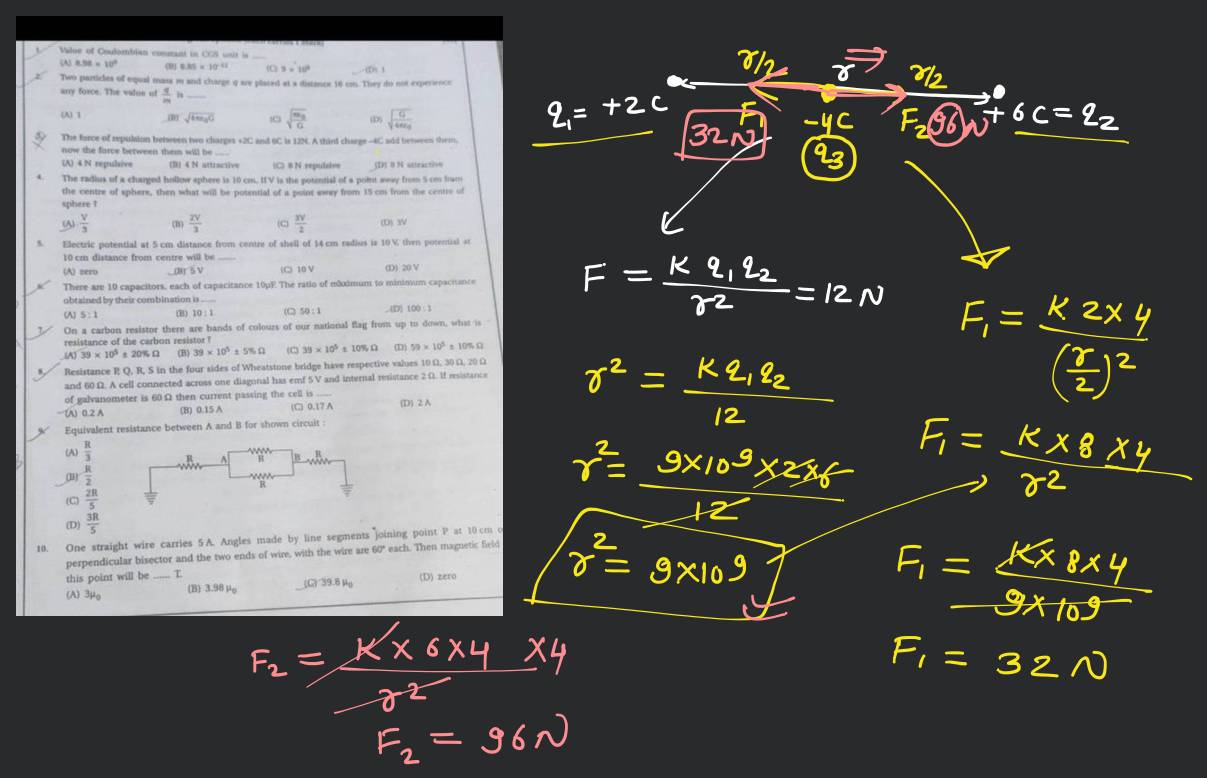 1. Value of Coulombian constant in CGS unit is ......
(A) 8.98 × 10⁹ (B) 8.85 × 10⁻¹² (C) 9 × 10⁹ (D) 1
2. Two particles of equal mass m and charge q are placed at a distance 16 cm. They do not experience
any force. The value of q/m is ......
(A) 1 (B) √4πε₀G (C) √(πε₀/G) (D) √(G/4πε₀)
3. The force of repulsion between two charges +2C and 6C is 12N. A third charge -4C add between them,
now the force between them will be ......
(A) 4 N repulsive (B) 4 N attractive (C) 8 N repulsive (D) 8 N attractive
4. The radius of a charged hollow sphere is 10 cm. If V is the potential of a point away from 5 cm from
the centre of sphere, then what will be potential of a point away from 15 cm from the centre of
sphere ?
(A) V/3 (B) 2V/3 (C) 3V/2 (D) 3V
5. Electric potential at 5 cm distance from centre of shell of 14 cm radius is 10 V, then potential at
10 cm distance from centre will be ......
(A) zero (B) 5 V (C) 10 V (D) 20 V
6. There are 10 capacitors, each of capacitance 10μF. The ratio of maximum to minimum capacitance
obtained by their combination is ......
(A) 5 : 1 (B) 10 : 1 (C) 50 : 1 (D) 100 : 1
7. On a carbon resistor there are bands of colours of our national flag from up to down, what is
resistance of the carbon resistor ?
(A) 39 × 10⁵ ± 20% Ω (B) 39 × 10⁵ ± 5% Ω (C) 39 × 10⁵ ± 10% Ω (D) 59 × 10⁵ ± 10% Ω
8. Resistance P, Q, R, S in the four sides of Wheatstone bridge have respective values 10 Ω, 30 Ω, 20 Ω
and 60 Ω. A cell connected across one diagonal has emf 5 V and internal resistance 2 Ω. If resistance
of galvanometer is 60 Ω then current passing the cell is ......
(A) 0.2 A (B) 0.15 A (C) 0.17 A (D) 2 A
9. Equivalent resistance between A and B for shown circuit :
(A) R/3
(B) R/2
(C) 2R/5
(D) 3R/5
R A R B R
R
10. One straight wire carries 5 A. Angles made by line segments joining point P at 10 cm
perpendicular bisector and the two ends of wire, with the wire are 60° each. Then magnetic field
this point will be ...... T.
(A) 3μ₀ (B) 3.98 μ₀ (C) 39.8 μ₀ (D) zero
r/2 r r/2
q₁ = +2C F₁ -4C F₂ +6C = q₂
32N q₃ 96N
F = K q₁ q₂ / r² = 12 N
r² = K q₁ q₂ / 12
r² = 9×10⁹×2×6 / 12
r² = 9×10⁹
F₁ = K 2×4 / (r/2)²
F₁ = K×8 ×4 / r²
F₁ = K×8×4 / 9×10⁹
F₁ = 32 N
F₂ = K×6×4 ×4 / r²
F₂ = 96N